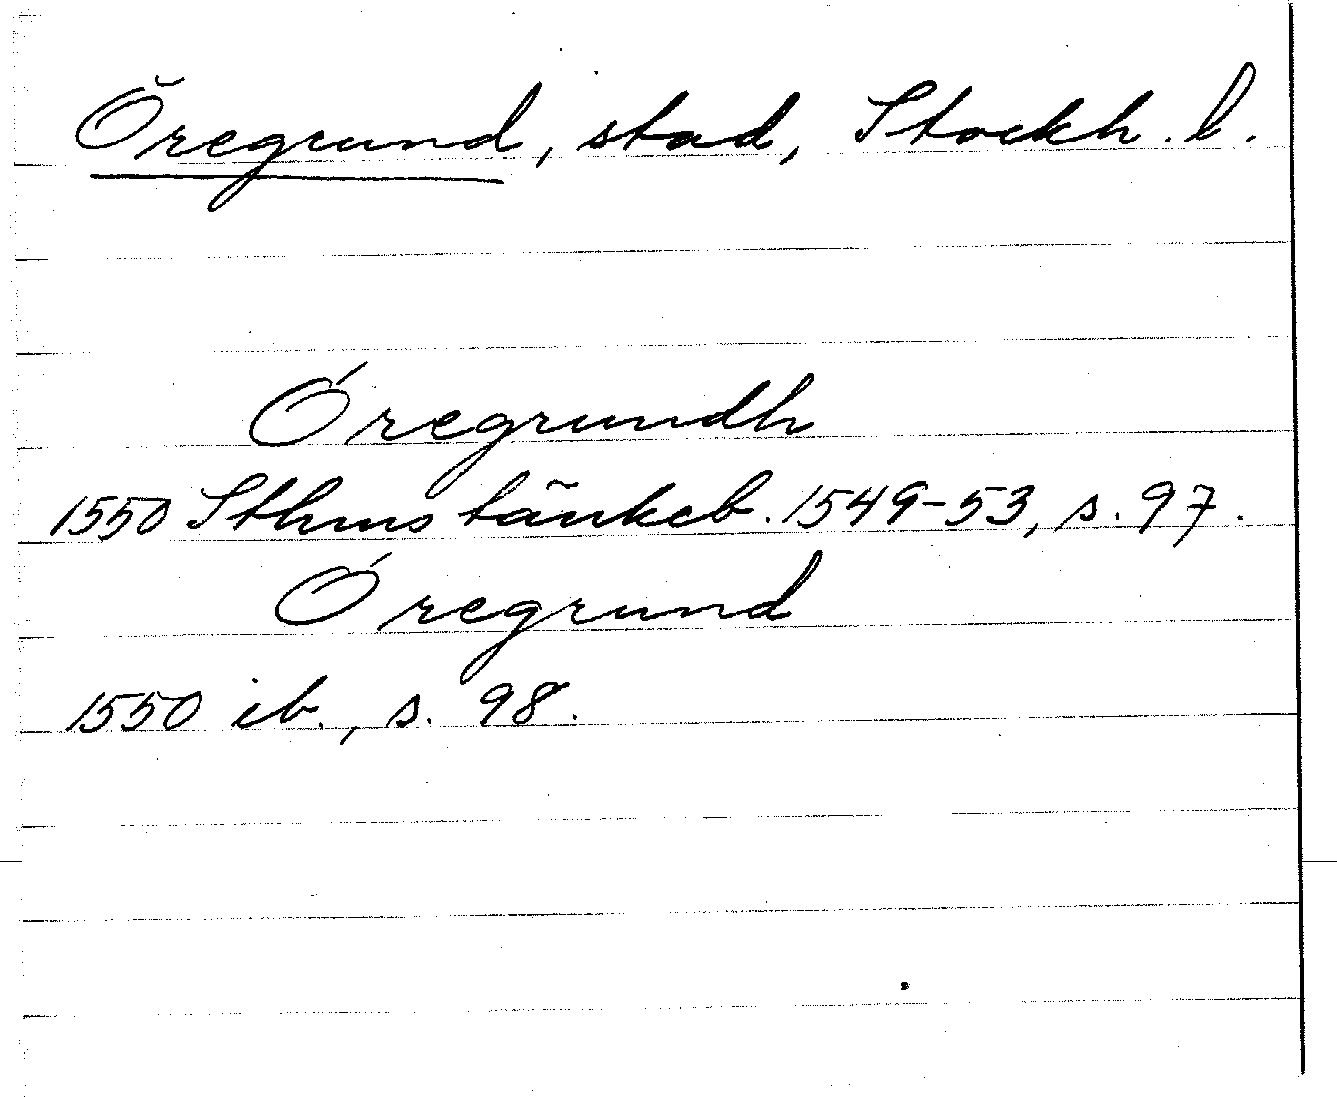 Öregrund, stad, Stockh. l.
Óregrundh
1550 Sthms tänkeb. 1549-53, s. 97.
Óregrund
1550 ib., s. 98.